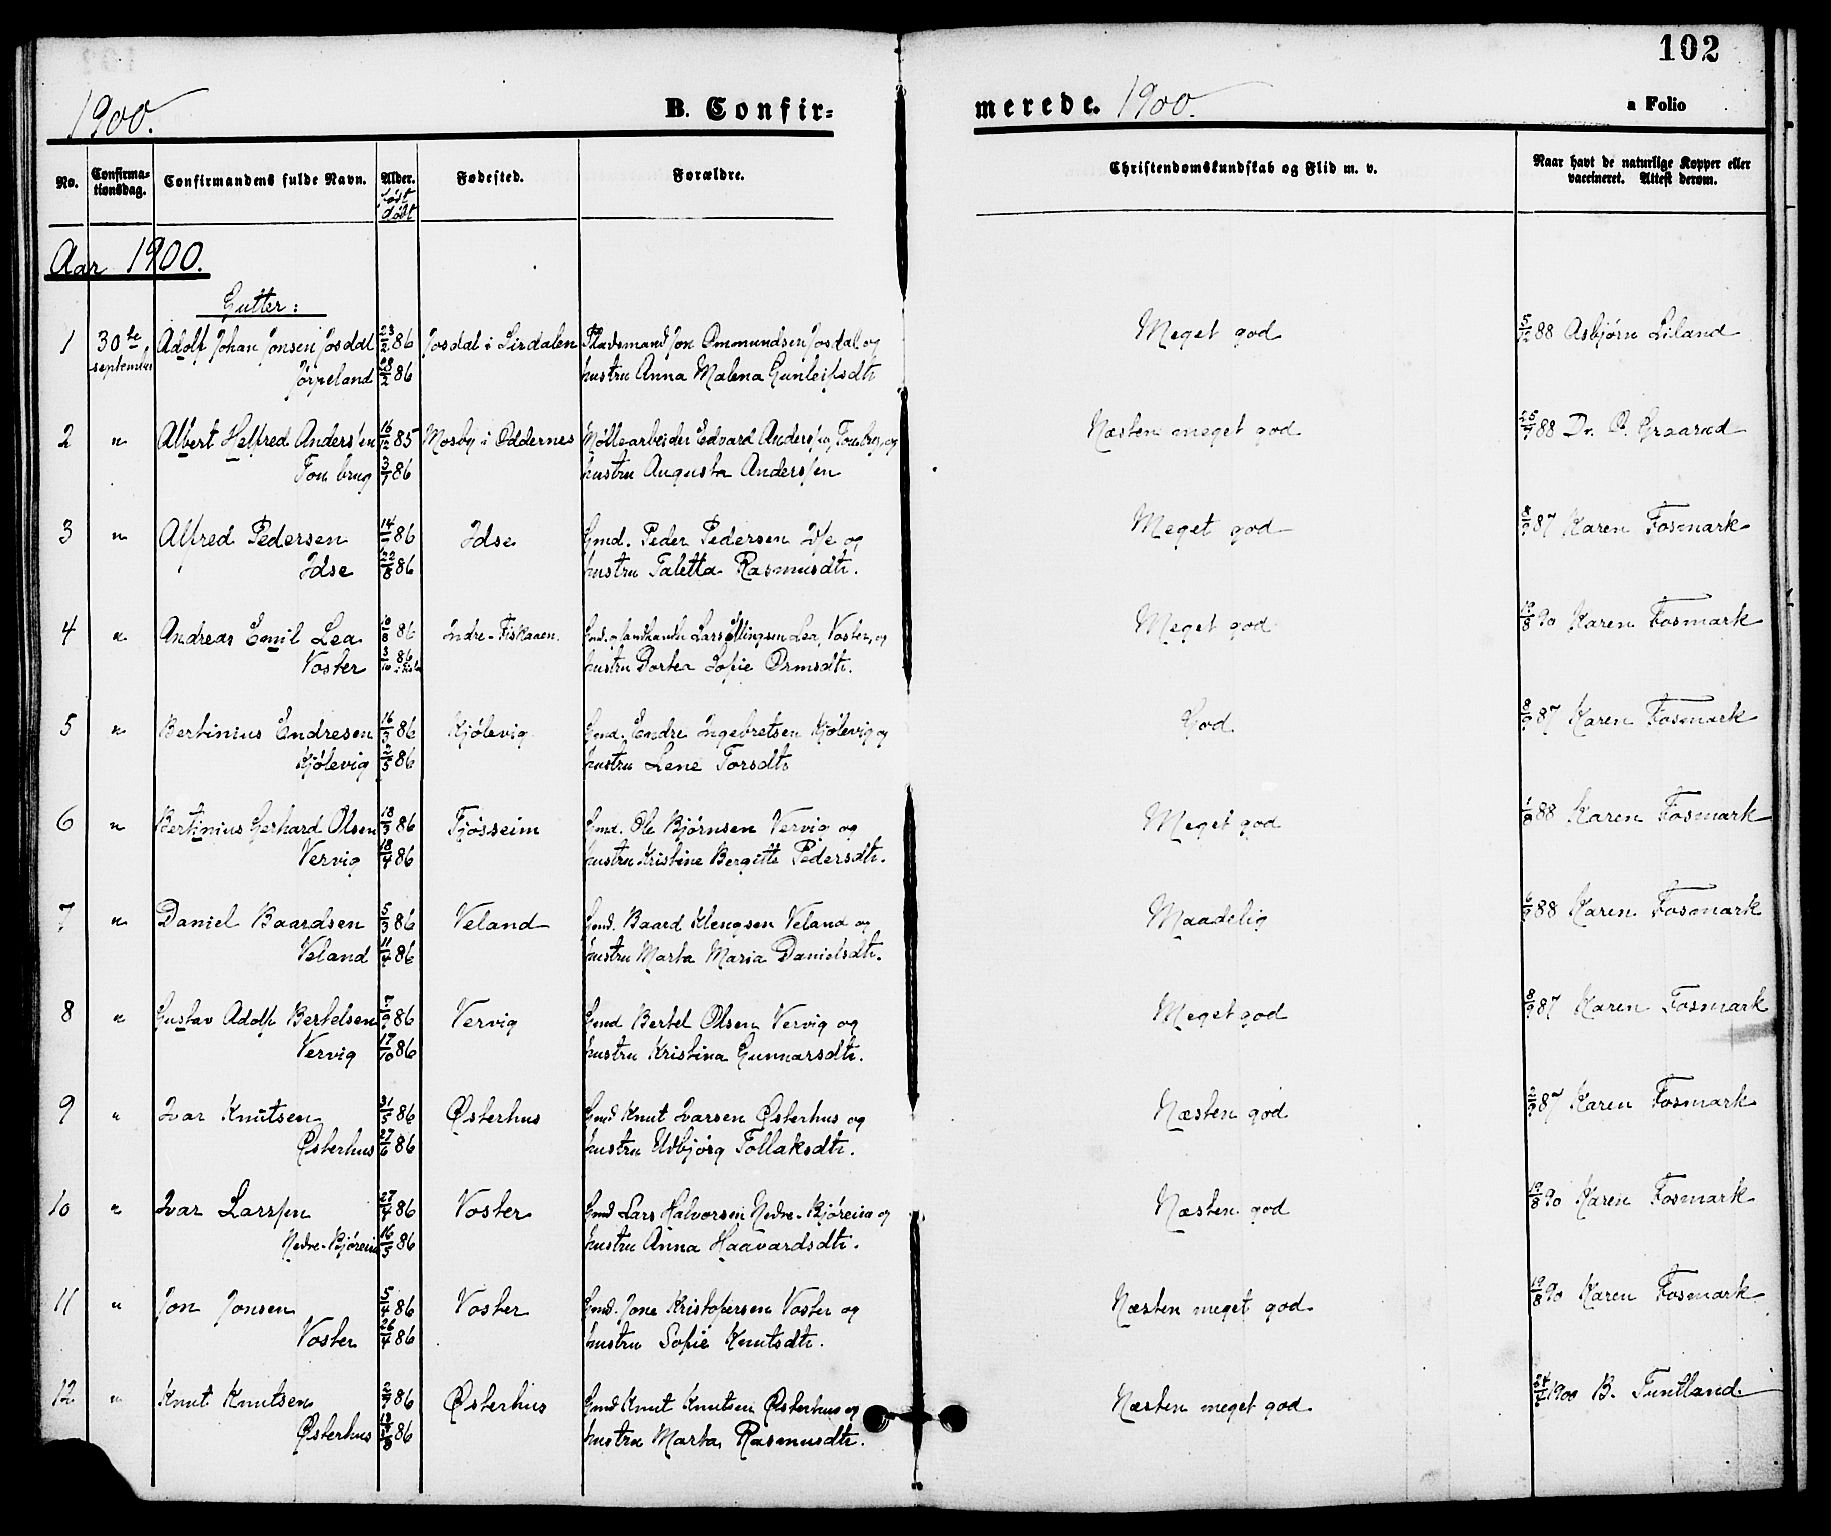 102
1900. B. Confir= merede. 1900. a Folio
No. Confirma=tionsdag. Confirmandens fulde Navn. Alder. Født døbt Fødested. Forældre. Christendomskundskab og Flid m. v. Naar havt de naturlige Kopper eller vaccineret. Attest derom.
Aar 1900.
Gutter:
1 30te Adolf Johan Jonsen Josdal 23/2 86 Josdal i Sirdalen Pladsmand Jon Ommundsen Josdal og Meget god 5/12 88 Asbjørn Liland
september Jørpeland 28/2 86 hustru Anna Malena Gunleifsdtr
2 " Albert Helfred Anderssen 16/12 85 Mosby i Oddernes Møllearbeider Edvard Anderssen, Foss brug, og Næsten meget god 25/7 88 Dr. O. Graarud
brug 3/1 86 hustru Augusta Anderssen
3 " Alfred Pedersen 14/7 86 Idse Gmd. Peder Pedersen Idse og Meget god 8/9 87 Karen Fosmark
Idse 22/8 86 hustru Taletta Rasmusdtr.
4 " Andreas Emil Lea 16/8 86 Indre-Fiskaaen. Gmd. og landhandler Lars Ellingsen Lea, Voster, og Meget god 19/8 90 Karen Fosmark
Voster 3/10 86 hustru Dortea Sofie Ormsdtr.
5 " Bertinius Endresen 16/3 86 Kjølevig Gmd. Endre Ingebretsen Kjølevig og God 8/9 87 Karen Fosmark
Kjølevig 2/5 86 hustru Lene Torsdtr
6 " Bertinius Gerhard Olsen 18/3 86 Tjøsseim Gmd. Ole Bjørnsen Vervig og Meget god 1/8 88 Karen Fosmark
Vervig 18/4 86 hustru Kristine Bergitte Pedersdtr.
7 " Daniel Baardsen 5/3 86 Veland Gmd. Baard Klengsen Veland og Maadelig 6/9 88 Karen Fosmark
Veland 11/4 86 hustru Marta Maria Danielsdtr.
8 " Gustav Adolf Bertelsen 7/9 86 Vervig Gmd Bertel Olsen Vervig og Meget god 8/9 87 Karen Fosmark
Vervig 17/10 86 hustru Kristina Gunnarsdtr.
9 " Ivar Knutsen 31/5 86 Østerhus Gmd Knut Ivarsen Østerhus og Næsten god 2/9 87 Karen Fosmark
Østerhus 27/6 86 hustru Udbjørg Tollaksdtr.
10 " Ivar Larssen 27/4 86 Voster Gmd Lars Halvorsen Nedre-Bjøreim og Næsten god 19/8 90 Karen Fosmark
Nedre-Bjøreim 16/5 86 hustru Anna Haavardsdtr.
11 " Jon Jonsen 5/4 86 Voster Gmd. Jone Kristofersen Voster og Næsten meget god. 19/8 90 Karen Fosmark
Voster 26/4 86 hustru Sofie Knutsdtr.
12 " Knut Knutsen 2/7 86 Østerhus Gmd Knut Knutsen Østerhus og Næsten meget god. 1900 B. Tuntland.
Østerhus 86 hustru Marta Rasmusdtr.